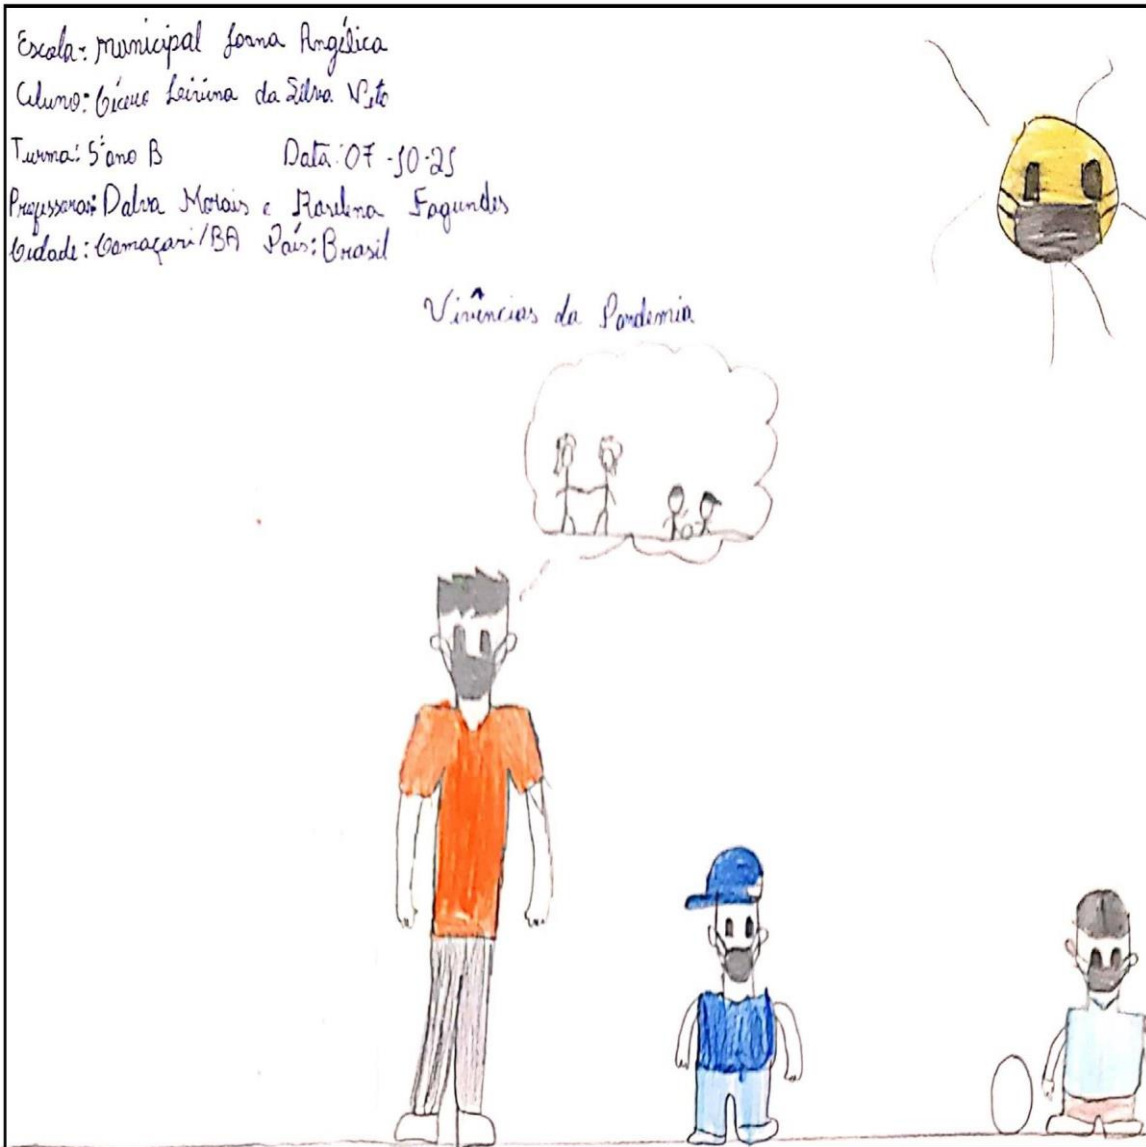 Escola: Municipal Joana Angélica
Aluno: Cícero da Silva Neto
Turma: 5º ano B Data: 07-10-21
Professoras: Dalva Morais e Rosilena Fagundes
Cidade: Camaçari/BA País: Brasil
Vivências da Pandemia